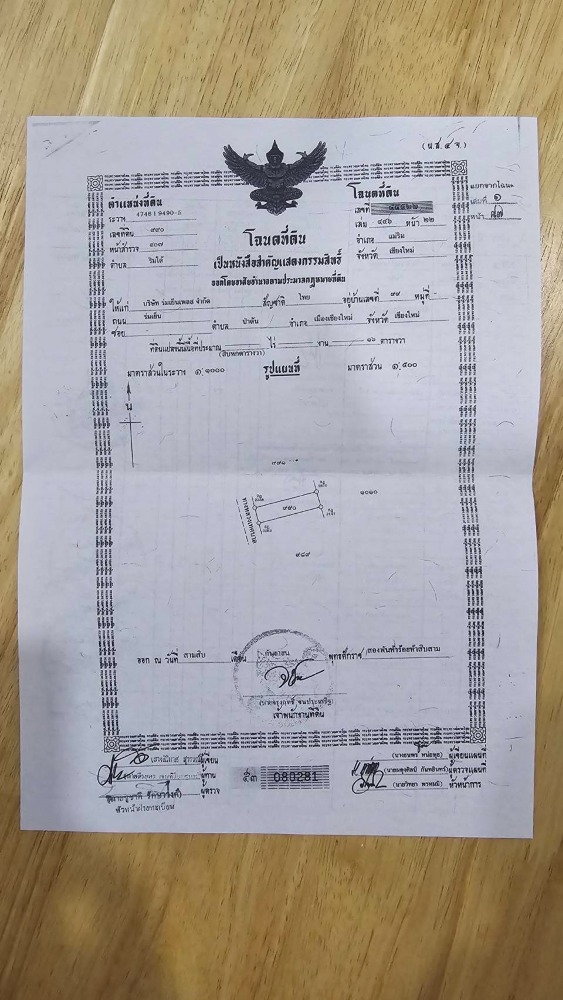 (น.ส.๔ จ.)
ตำแหน่งที่ดิน
ระวาง 4746 I 9490-5
เลขที่ดิน ๙๙๐
หน้าสำรวจ ๔๐๗
ตำบล ริมใต้
โฉนดที่ดิน
เป็นหนังสือสำคัญแสดงกรรมสิทธิ์
ออกโดยอาศัยอำนาจตามประมวลกฎหมายที่ดิน
โฉนดที่ดิน
เลขที่
เล่ม ๔๔๖ หน้า ๒๒
อำเภอ แม่ริม
จังหวัด เชียงใหม่
แยกจากโฉนด
เล่มที่ ๑
หน้า
ให้แก่ บริษัท ร่มเย็นเพลส จำกัด สัญชาติ ไทย อยู่บ้านเลขที่ ๙๙ หมู่ที่
ถนน ร่มเย็น ตำบล ป่าตัน อำเภอ เมืองเชียงใหม่ จังหวัด เชียงใหม่
ซอย
ที่ดินแปลงนี้มีเนื้อที่ประมาณ ไร่ งาน ๑๖ ตารางวา
(สิบหกตารางวา)
มาตราส่วนในระวาง ๑:๑๐๐๐ รูปแผนที่ มาตราส่วน ๑:๕๐๐
น
๙๙๑
๑๐๑๐
๙๙๐
ทางหลวงเทศบาล
๙๘๙
ออก ณ วันที่ สามสิบ เดือน กันยายน พุทธศักราช สองพันห้าร้อยห้าสิบสาม
เจ้าพนักงานที่ดิน
ผู้เขียน
ผู้ทาน
ผู้ตรวจ
หัวหน้าฝ่ายทะเบียน
080281
ผู้เขียนแผนที่
ผู้ตรวจแผนที่
(นายวิทยา พรหมมี) หัวหน้าการ